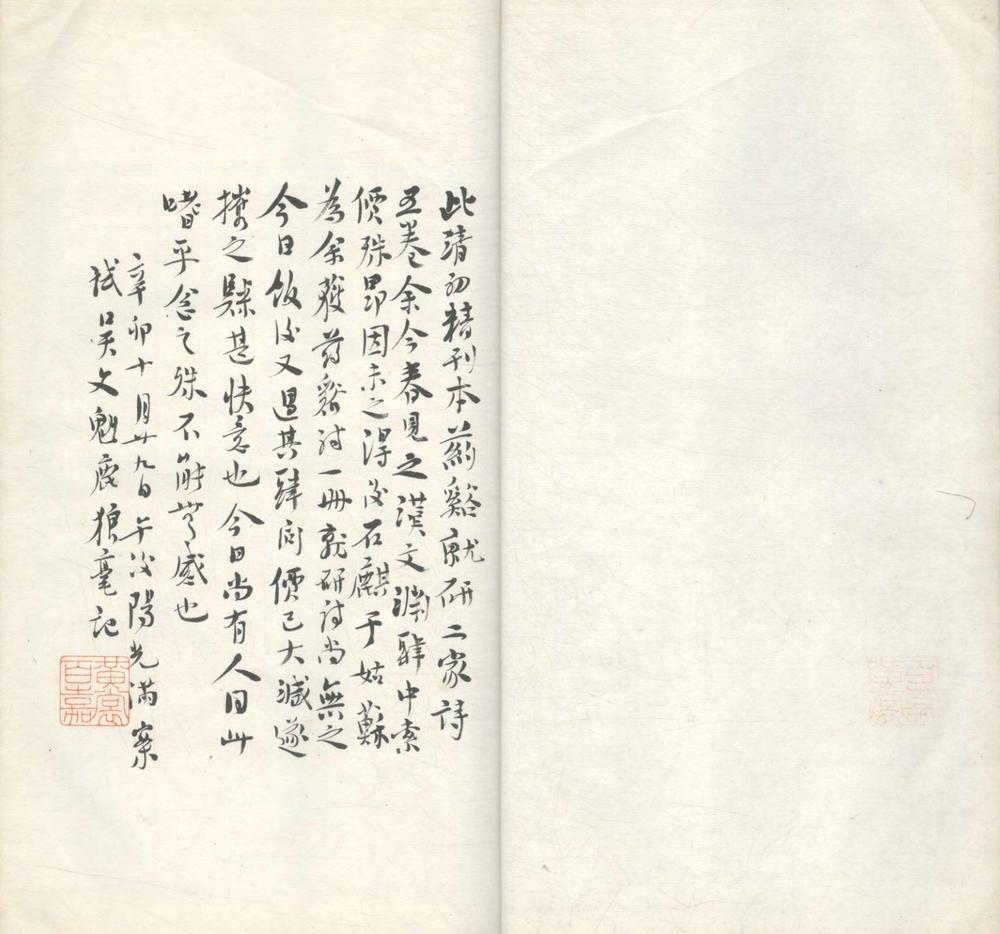 此清初精刊本葯谿就研二家詩
五卷余今春見之漢文淵肆中索
價殊昂因未之得後石麒于姑蘇
為余獲葯谿詩一冊就研詩尚無之
今日飯後又過其肆問價已大減遂
攜之歸甚快意也今日尚有人同此
嗜乎念之殊不能無感也
辛卯十月廿九日午後陽光滿案
試吳文魁鹿狼毫記
黃裳百嘉